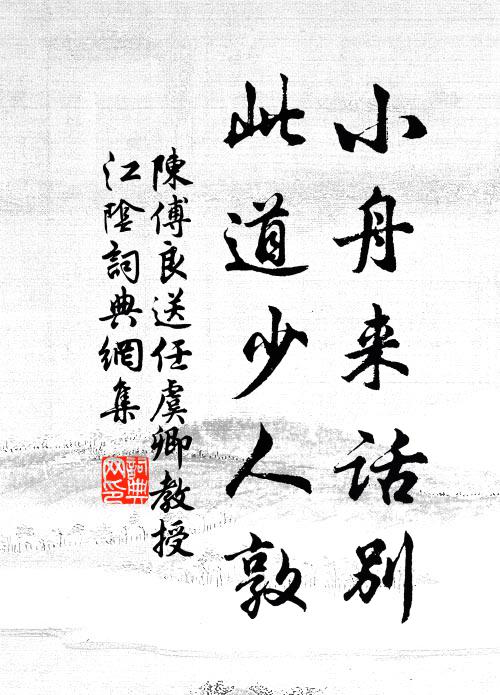 小舟来话别
此道少人敦
陳傅良送任虞卿教授
江陰詞典網集
詞典網印